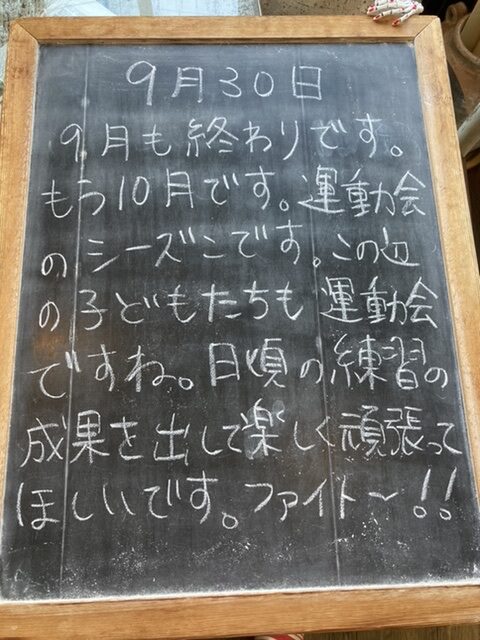 9月30日
9月も終わりです。
もう10月です。運動会
のシーズンです。この辺
の子どもたちも運動会
ですね。日頃の練習の
成果を出して楽しく頑張って
ほしいです。ファイト〜!!